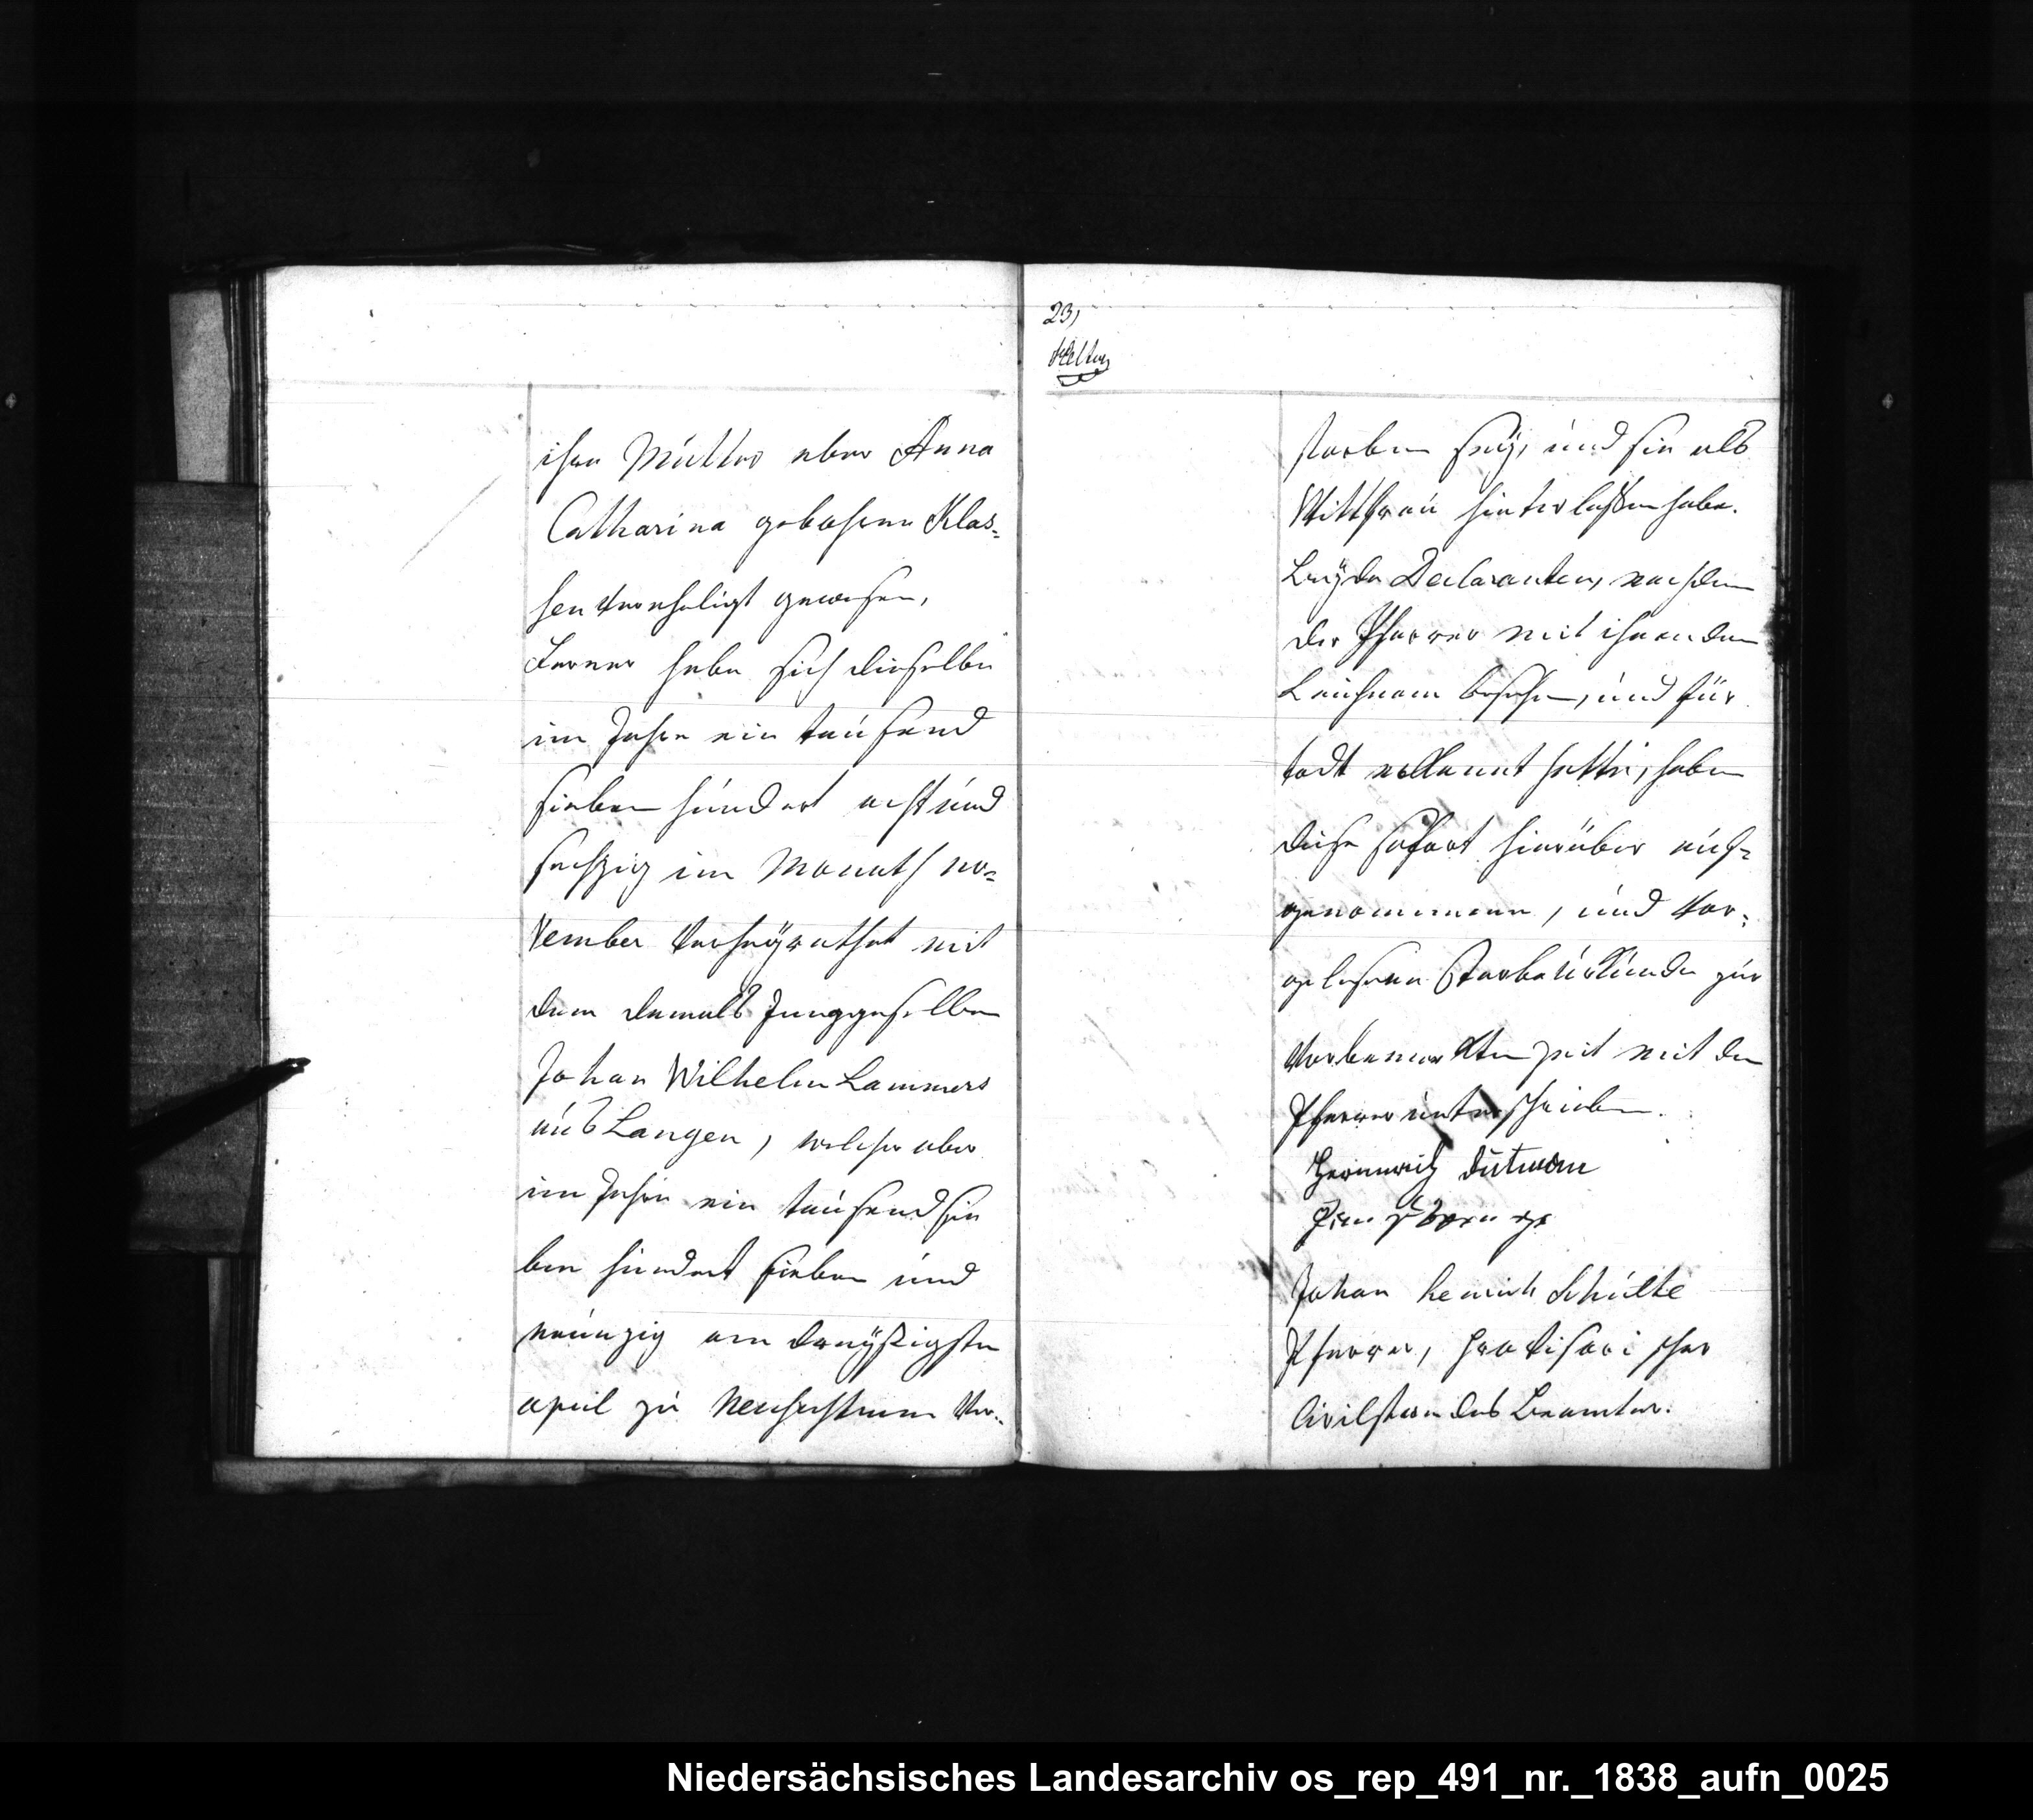 ihre Mutter aber Anna
Catharina gebohrene Klas=
sen verehligt gewesen,
Ferner habe sich dieselbe
im Jahre ein tausend
sieben hundert acht und
sechzig im Monath no=
vember verheÿrathet mit
dem damals Junggesellen
Johan Wilhelm Lammers
aus Langen, welcher aber
im Jahre ein tausend sie
ben hundert sieben und
neunzig am dreÿßigsten
april zu ver=
23,
storben seÿ, und sie als
Wittfrau hinterlaßen habe.
Beÿde Declaranten, nachdem
der Pfarrer mit ihnen den
Leichnam besehen, und für
todt erkannt hatte, haben
diese sofort hierüber auf=
genommene, und vor=
gelesene Sterbeurkunde zur
vorbemerkten zeit mit dem
Pfarrer unterschrieben.
Johan henrich Schulte
Pfarrer, provisorischer
Civilstandes Beamter.
Niedersächsisches Landesarchiv os_rep_491_nr._1838_aufn_0025